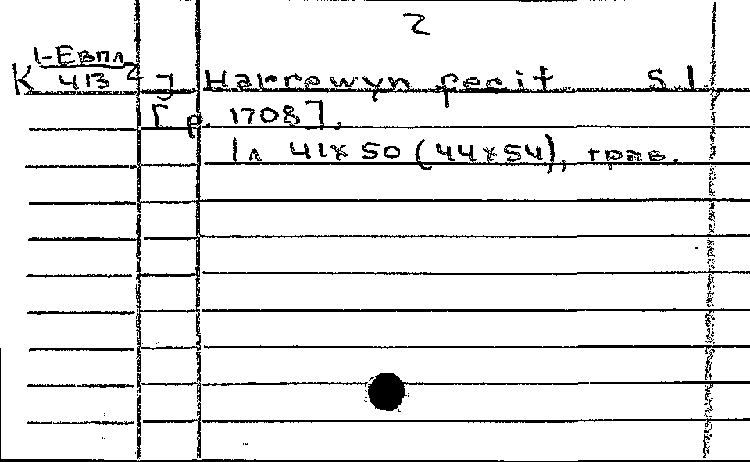 2
К 1-Евпл 2
413
] Harrewyn fecit S. l.,
[p. 1708].
1 л 41x50 (44x54), грав.